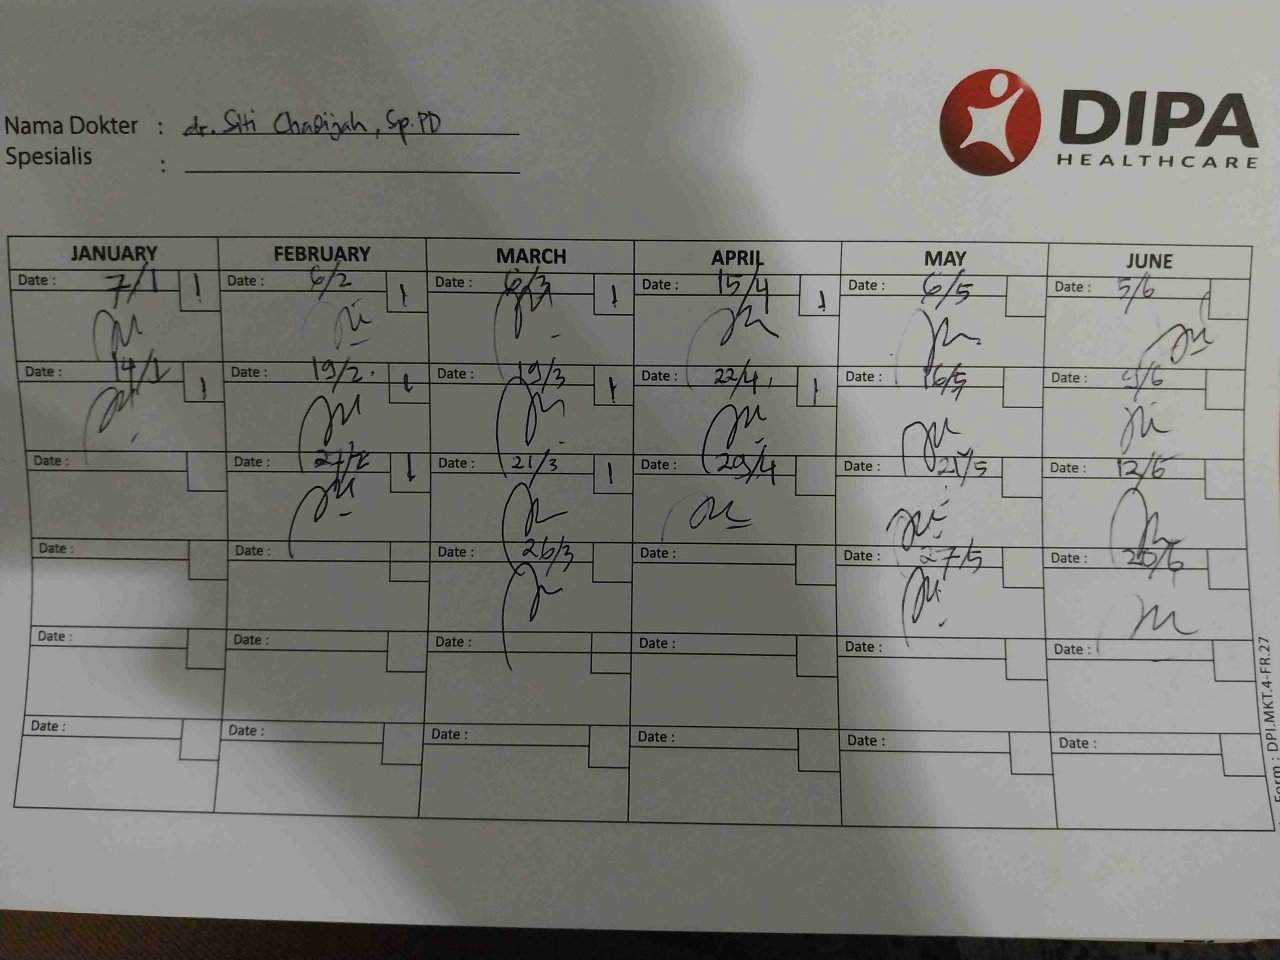 DIPA
HEALTHCARE
Nama Dokter : dr. Siti Chadijah, Sp.PD
Spesialis :
JANUARY FEBRUARY MARCH APRIL MAY JUNE
Date : 7/1 1 Date : 6/2 1 Date : 6/3 1 Date : 15/4 1 Date : 6/5 Date : 5/6
Date : 14/1 1 Date : 19/2 1 Date : 19/3 1 Date : 22/4 1 Date : 16/5 Date : /6
Date : Date : 27/2 1 Date : 21/3 1 Date : 29/4 Date : 21/5 Date : 12/6
Date : Date : Date : 26/3 Date : Date : 27/5 Date : 26/6
Date : Date : Date : Date : Date : Date :
Date : Date : Date : Date : Date : Date :
Form : DPI.MKT.4-FR.27